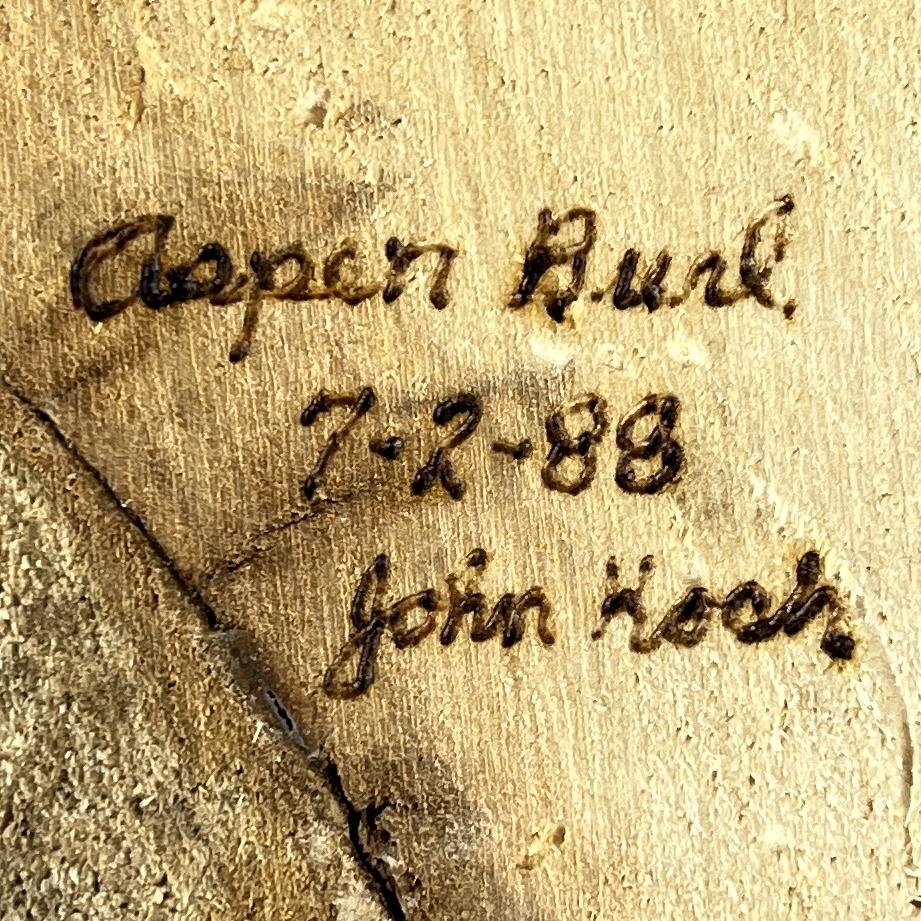 Aspen Burl
7-2-88
John Koch